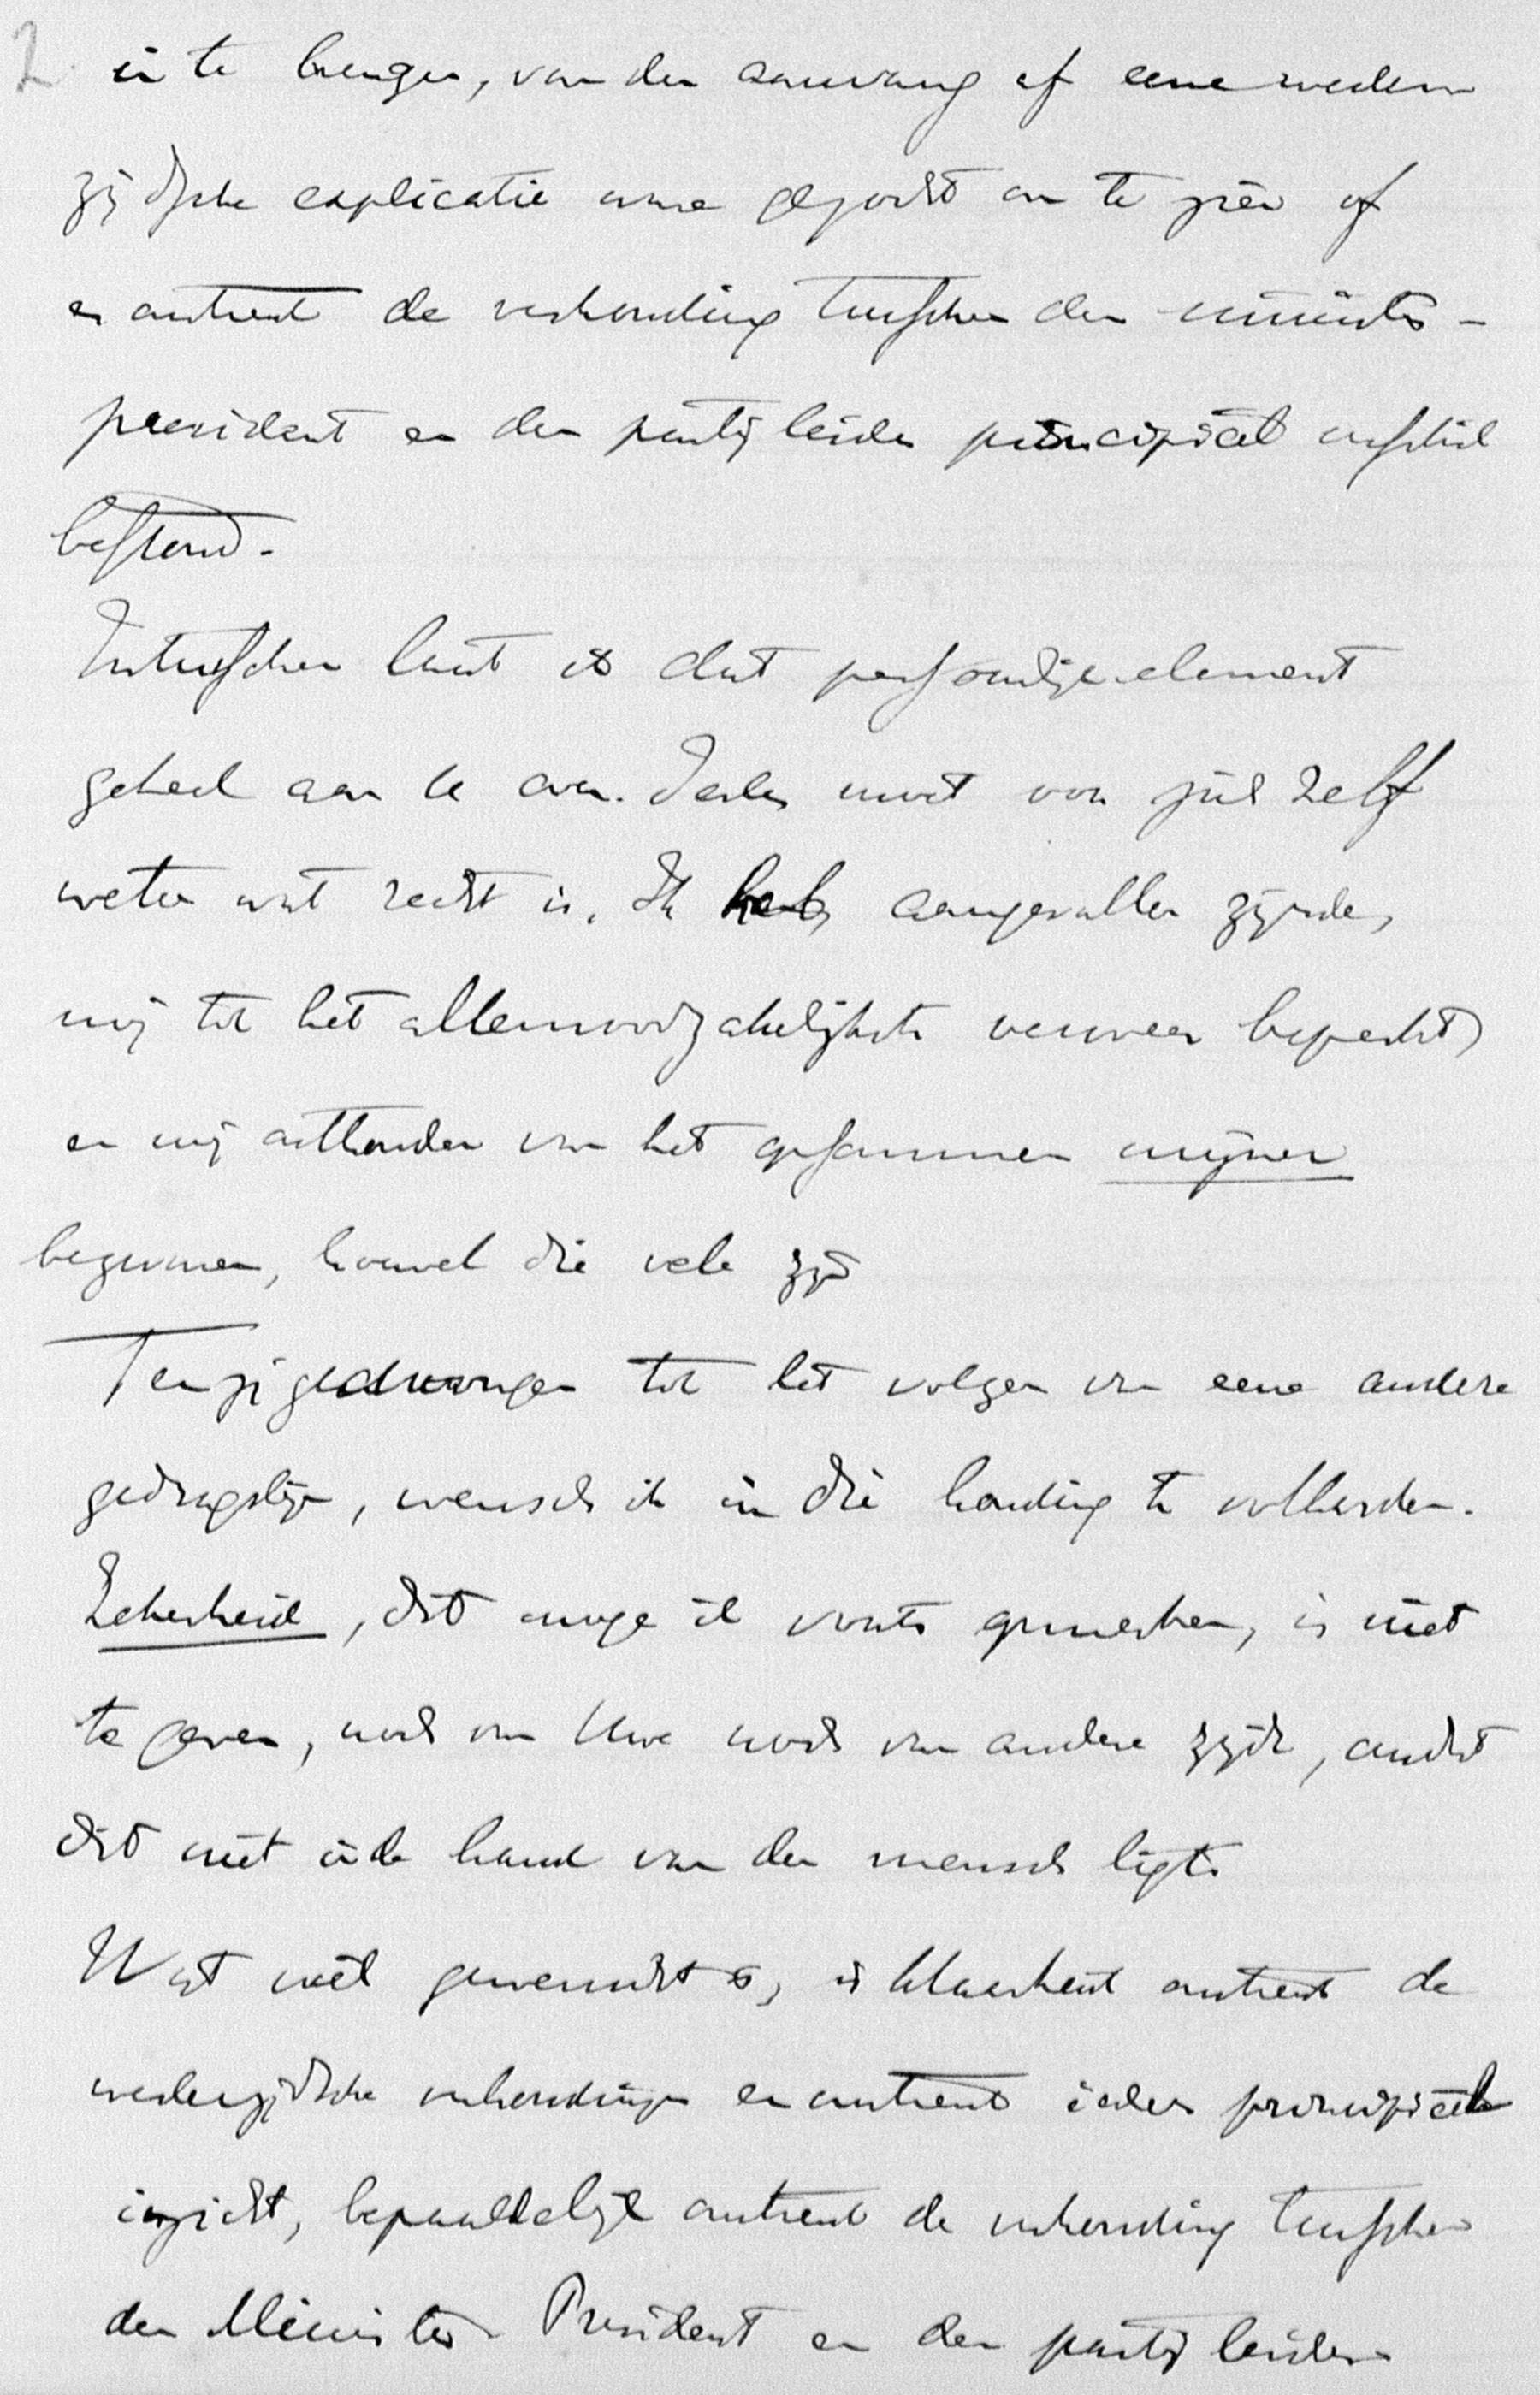 2. in te brengen, van den aanvang af eene weder-
zijdsche explicatie ware gezocht om te zien of
er omtrent de verhouding tusschen den minister-
president en den partijleider principieel verschil
bestond.
Intusschen laat ik dat persoonlijke element
geheel aan U over. Ieder moet voor zich zelf
weten wat recht is. Ik heb, aangevallen zijnde,
mij tot het allernoodzakelijkste verweer beperkt,
en mij onthouden van het opsommen mijner
bezwaren, hoewel die vele zijn
Tenzij gedwongen tot het volgen van eene andere
gedragslijn, wensch ik in die houding te volharden.
Zekerheid, dit moge ik voorts opmerken, is niet
te geven, noch van Uwe noch van andere zijde, omdat
dit niet in de hand van den mensch ligt.
Wat wel gewenscht is, is klaarheid omtrent de
wederzijdsche verhoudingen en omtrent ieders principieele
inzicht, bepaaldelijk omtrent de verhouding tusschen
den Minister-President en den partijleider